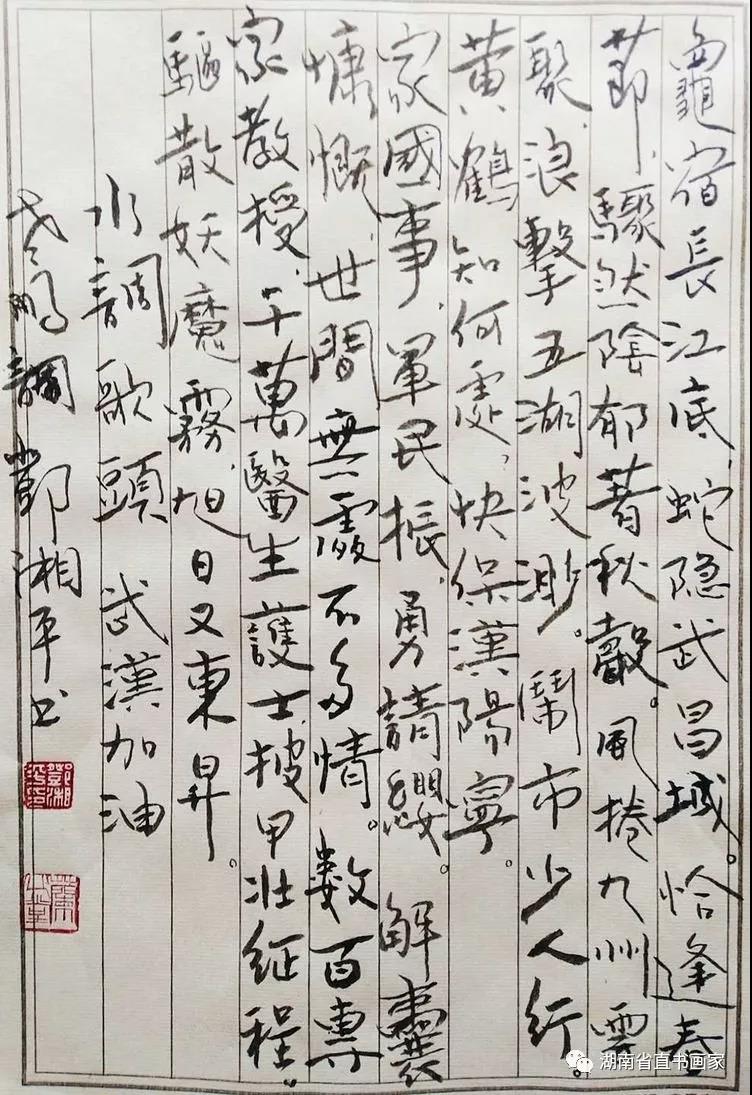 龜宿長江底,蛇隐武昌城。恰逢春
節,驟然陰郁著秋聲。風捲九州雲
聚,浪擊五湖波渺。鬧市少人行。
黄鶴知何處,快保漢陽寧。
家國事,軍民振,勇請纓。解囊
慷慨,世間無處不多情。數百專
家教授,千萬醫生護士,披甲壮征程。
驅散妖魔霧,旭日又東昇。
水調歌頭 武漢加油
鄧湘平书
湖南省直书画家